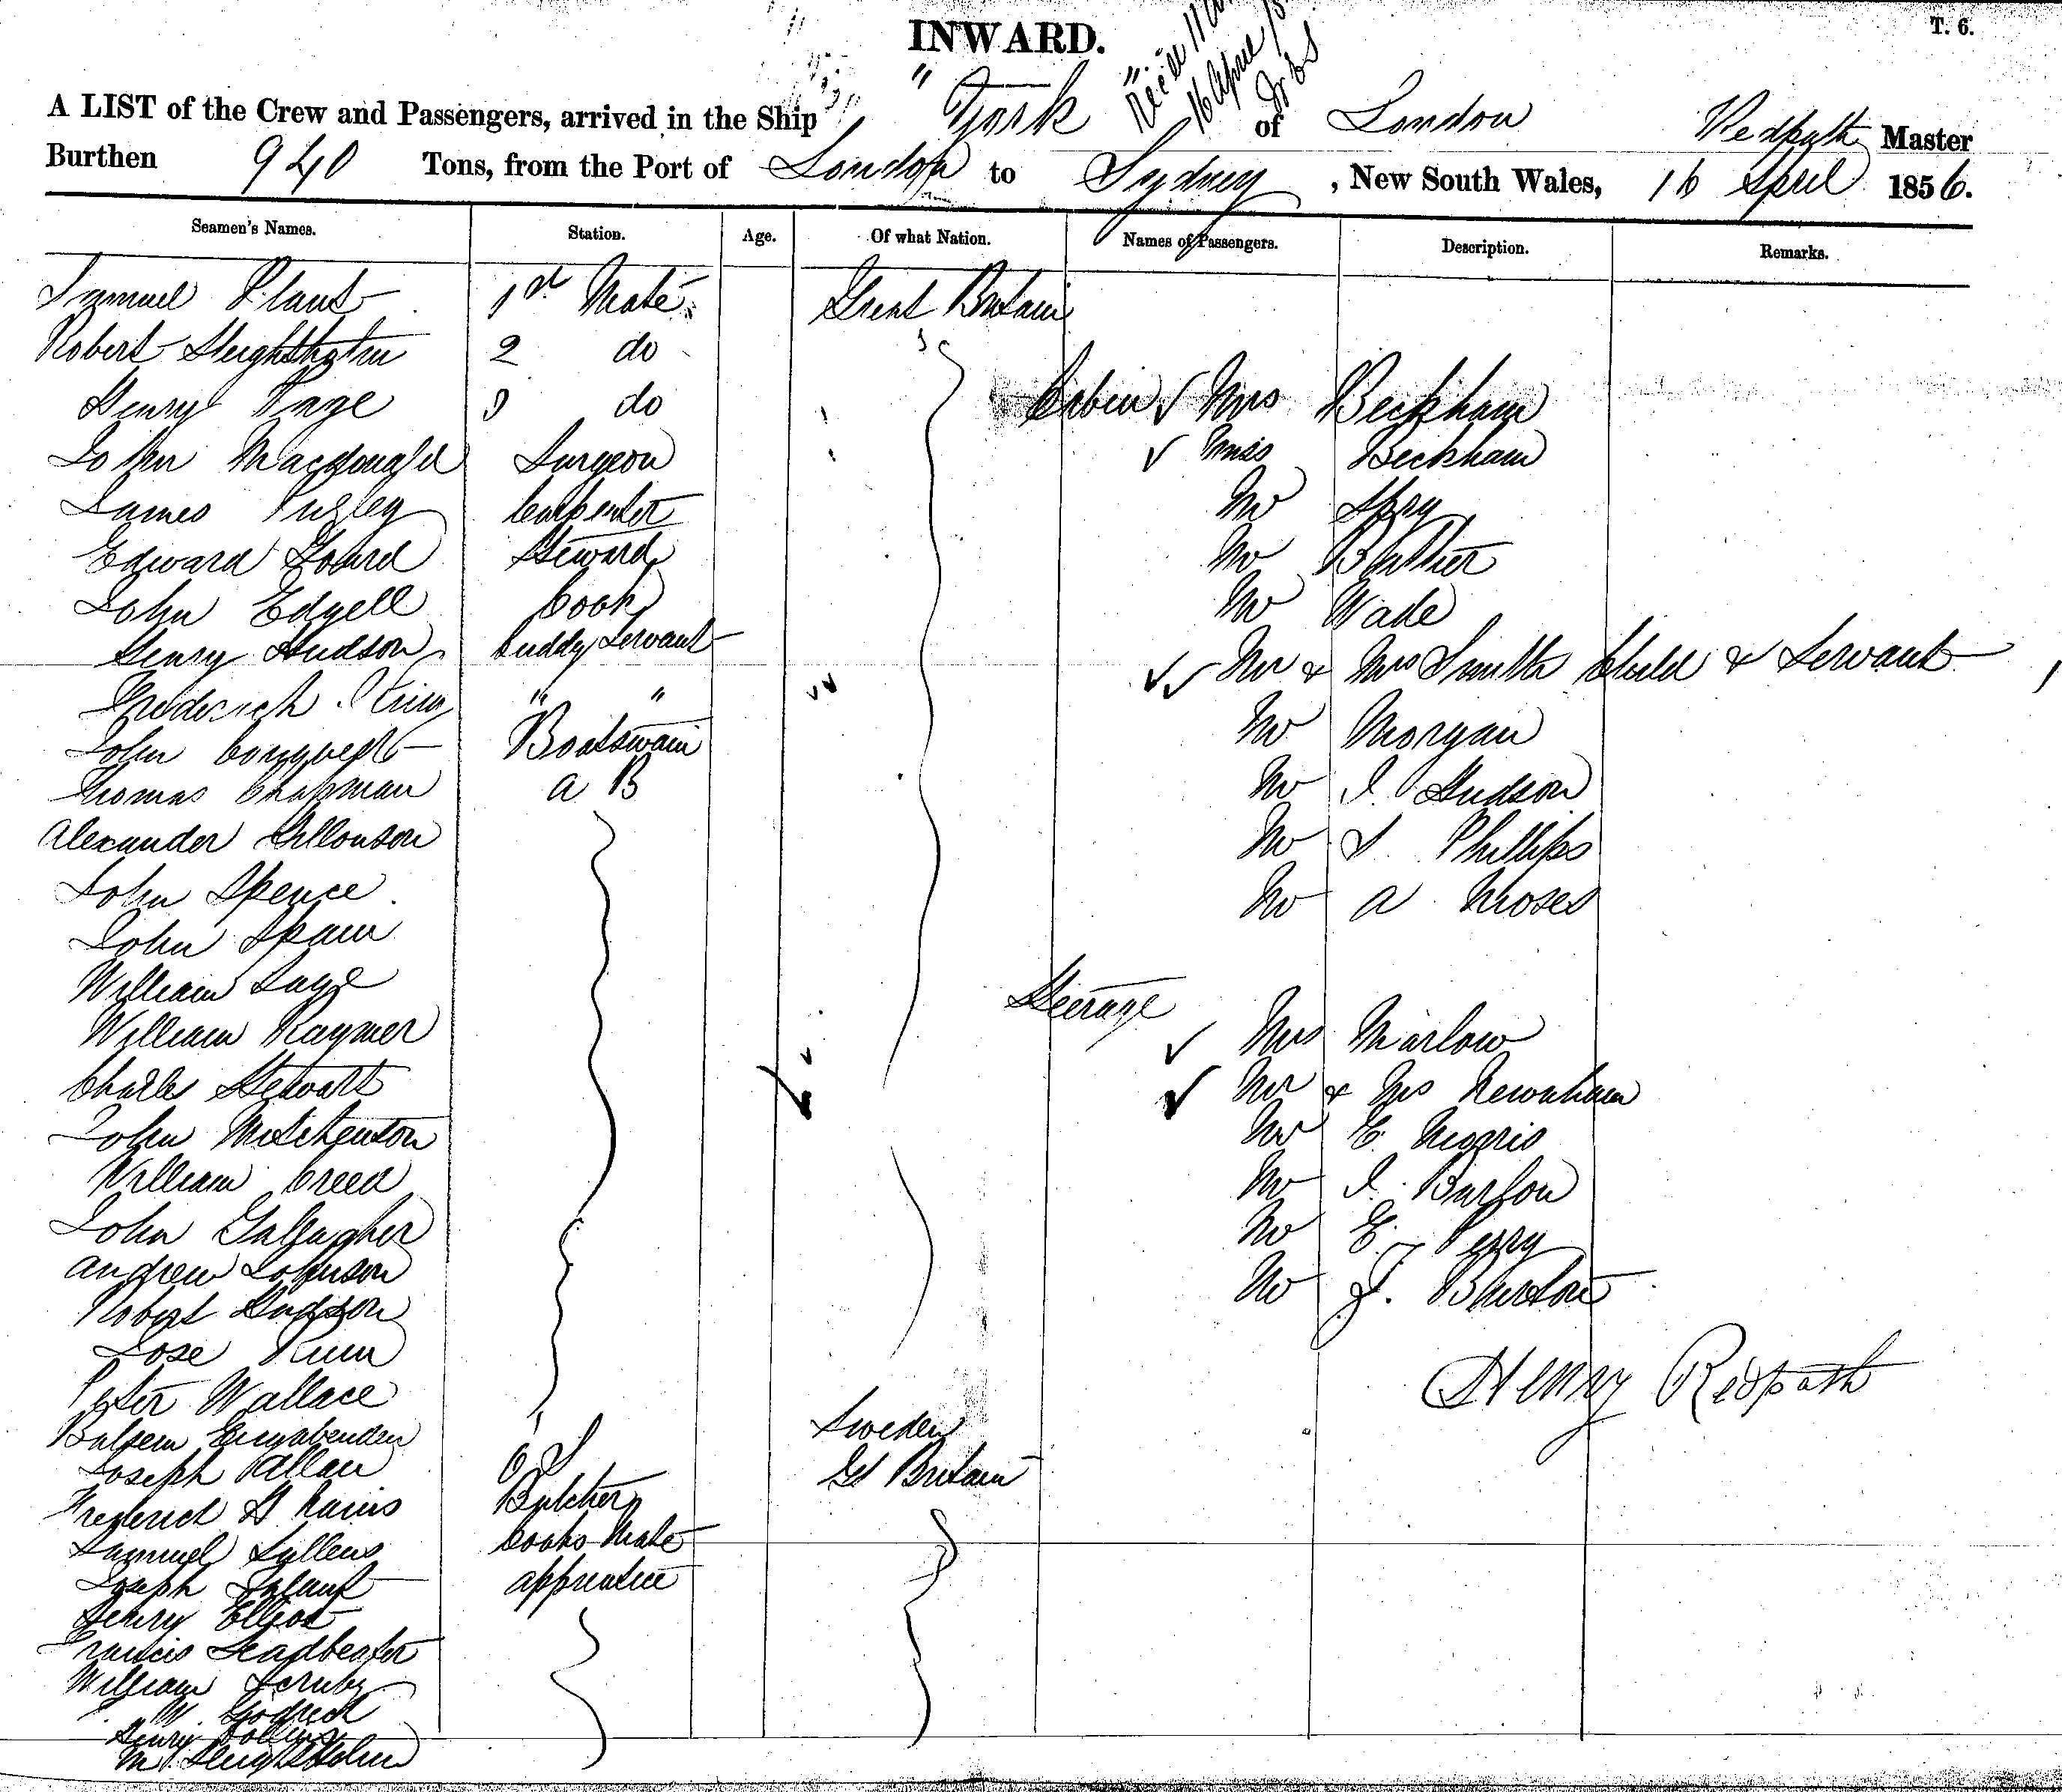 INWARD.
T. 6.
16 April
A LIST of the Crew and Passengers, arrived in the Ship "York" of London Redpath Master
Burthen 940 Tons, from the Port of London to Sydney, New South Wales, 16 April 1856.
Seamen's Names. Station. Age. Of what Nation. Names of Passengers. Description. Remarks.
Samuel Plant 1st Mate Great Britain
Robert Sleightholm 2 do
Henry Page 3 do Cabin Mrs Beckham
John Macdougald Surgeon Miss Beckham
James Pugley Carpenter Mr Spry
Edward Steward Mr
John Edgell Cook Mr Wade
Henry Hudson Cuddy Servant Mr & Mrs Smith Child & Servant
Frederick " " Mr Morgan
John Conquest Boatswain Mr J. Hudson
Thomas Chapman A B Mr S Phillips
Alexander Mr A Moses
John Spence
John Spain
William Sage Steerage
William Raymer Mrs Marlow
Charles Stewart Mr & Mrs Newnham
John Mitchenson Mr E. Morris
William Creed Mr J. Burfon
John Gallagher Mr E. Perry
Andrew Johnson Mr J. Burton
Robert Hudson
Jose
Peter Wallace Henry Redpath
Balsem Sweden
Joseph Allan O S Gt Britain
Frederick G Rains Butcher
Samuel Sullens Cooks Mate
Joseph Apprentice
Henry Elliot
Francis Leadbeater
William Scruby
W. Godfred
Henry Collins
M. Sleightholm